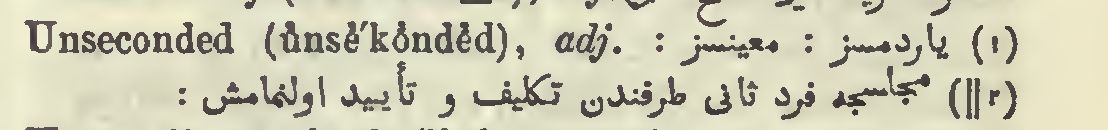 Unseconded (ŭnsĕ′kŏndĕd), adj. : (١) ياردمسز : معينسز :
(‖٢) مجلسجه فرد ثانى طرفندن تكليف و تأييد اولنمامش :